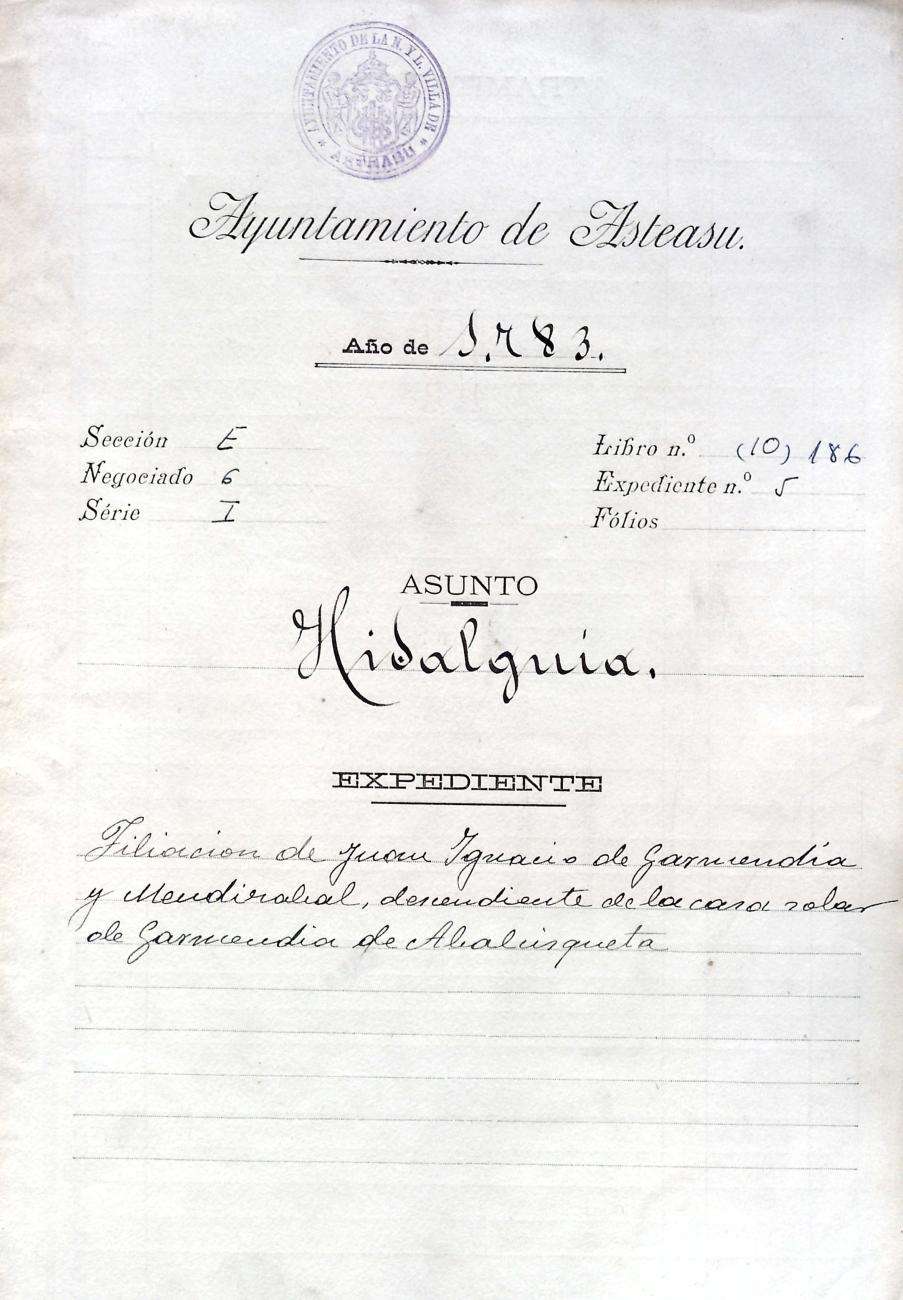 * AYUNTAMIENTO DE LA N. Y L. VILLA DE *
ASTEASU
Ayuntamiento de Asteasu.
Año de 1.783.
Sección E
Negociado 6
Série I
Libro n.º (10) 186
Expediente n.º 5
Fólios
ASUNTO
Hidalguía.
EXPEDIENTE
Filiacion de Juan Ignacio de Garmendía
y Mendirabal, descendiente de la casa solar
de Garmendia de Abalisqueta